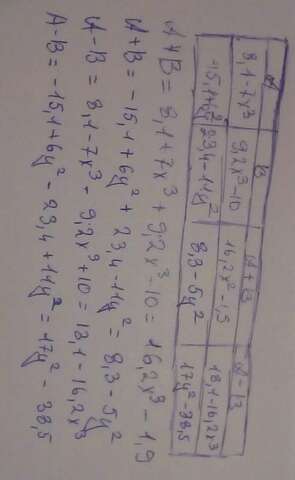 A B A+B A-B
8,1-7x³ 9,2x³-10 16,2x³-1,5 18,1-16,2x³
-15,1+6y² 23,4-11y² 8,3-5y² 17y²-38,5
A+B = 8,1+7x³+9,2x³-10 = 16,2x³-1,9
A+B = -15,1+6y²+23,4-11y² = 8,3-5y²
A-B = 8,1-7x³-9,2x³+10 = 18,1-16,2x³
A-B = -15,1+6y²-23,4+11y² = 17y²-38,5